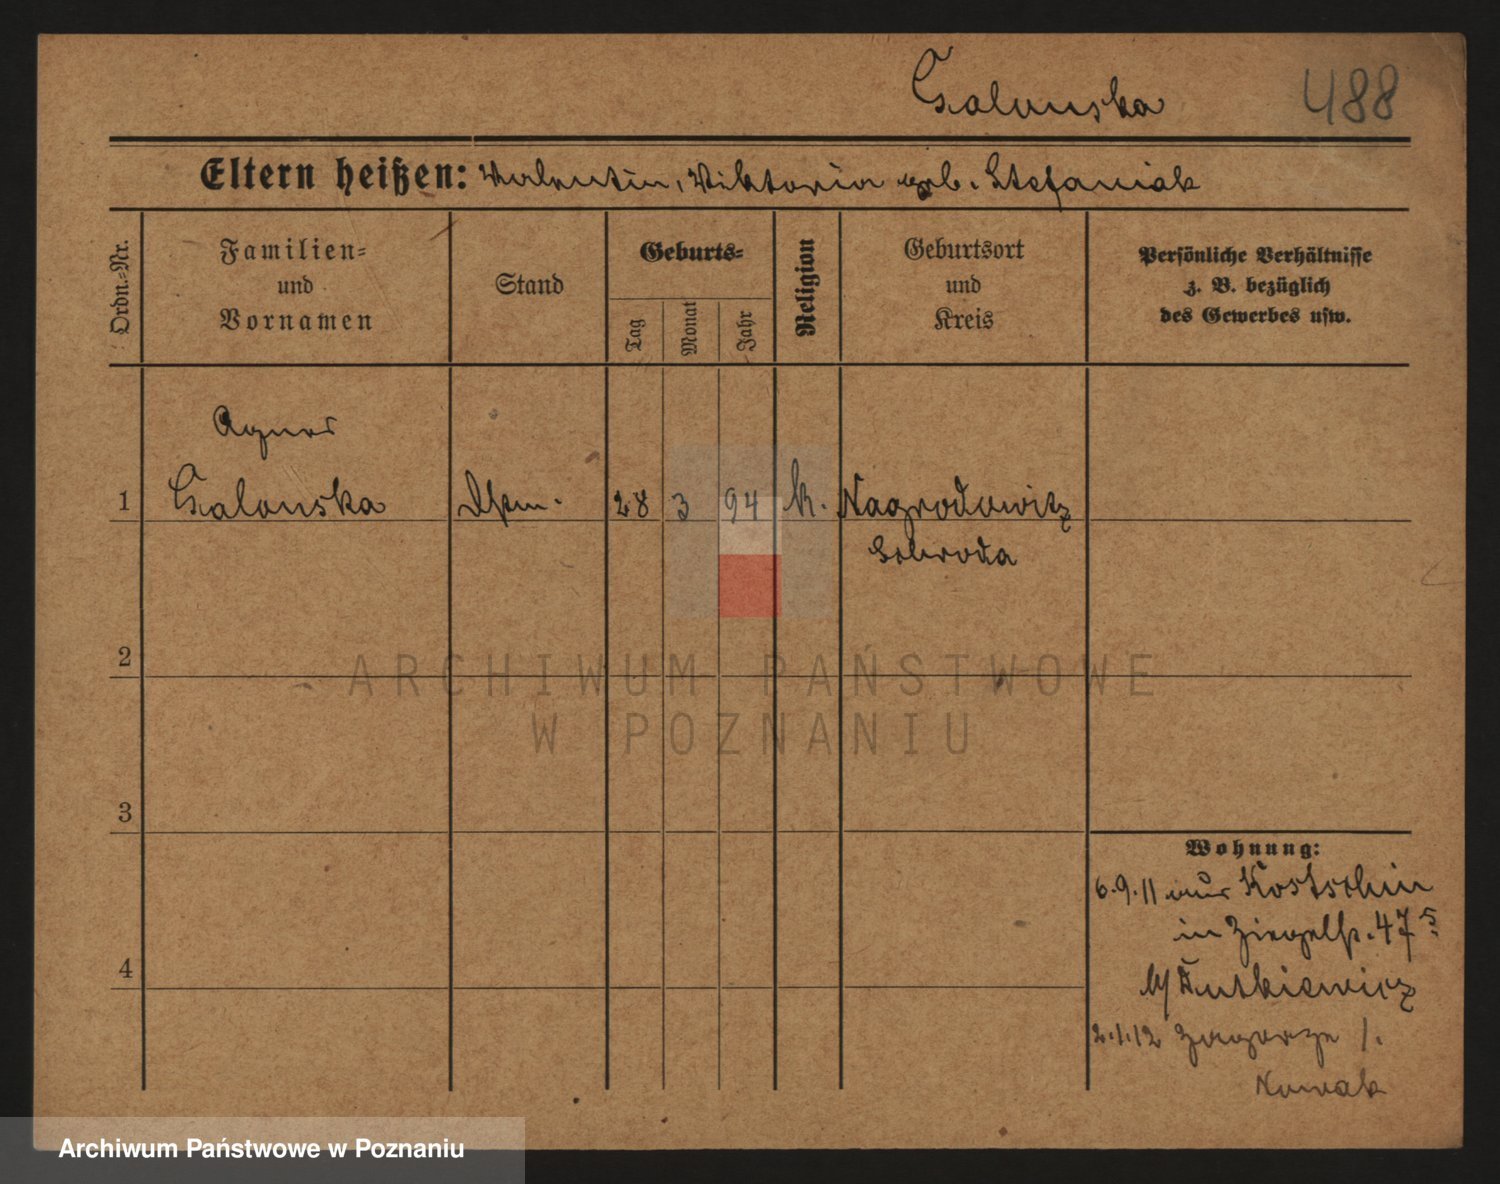 Galonska 488
Eltern heißen: Valentin, Viktoria geb. Stefaniak
Ordn.=Nr.
Familien=
und
Vornamen
Stand
Geburts=
Tag
Monat
Jahr
Religion
Geburtsort
und
Kreis
Persönliche Verhältnisse
z. B. bezüglich
des Gewerbes usw.
Agnes
1 Galonska 28 3 94 k. Nagradowitz
Schroda
2
ARCHIWUM PAŃSTWOWE
W POZNANIU
3
Wohnung:
6.9.11 aus Kostschin
in Ziegelstr. 47
4
b/ Rutkiewicz
2.1.12 Zagorze 1.
Nowak
Archiwum Państwowe w Poznaniu